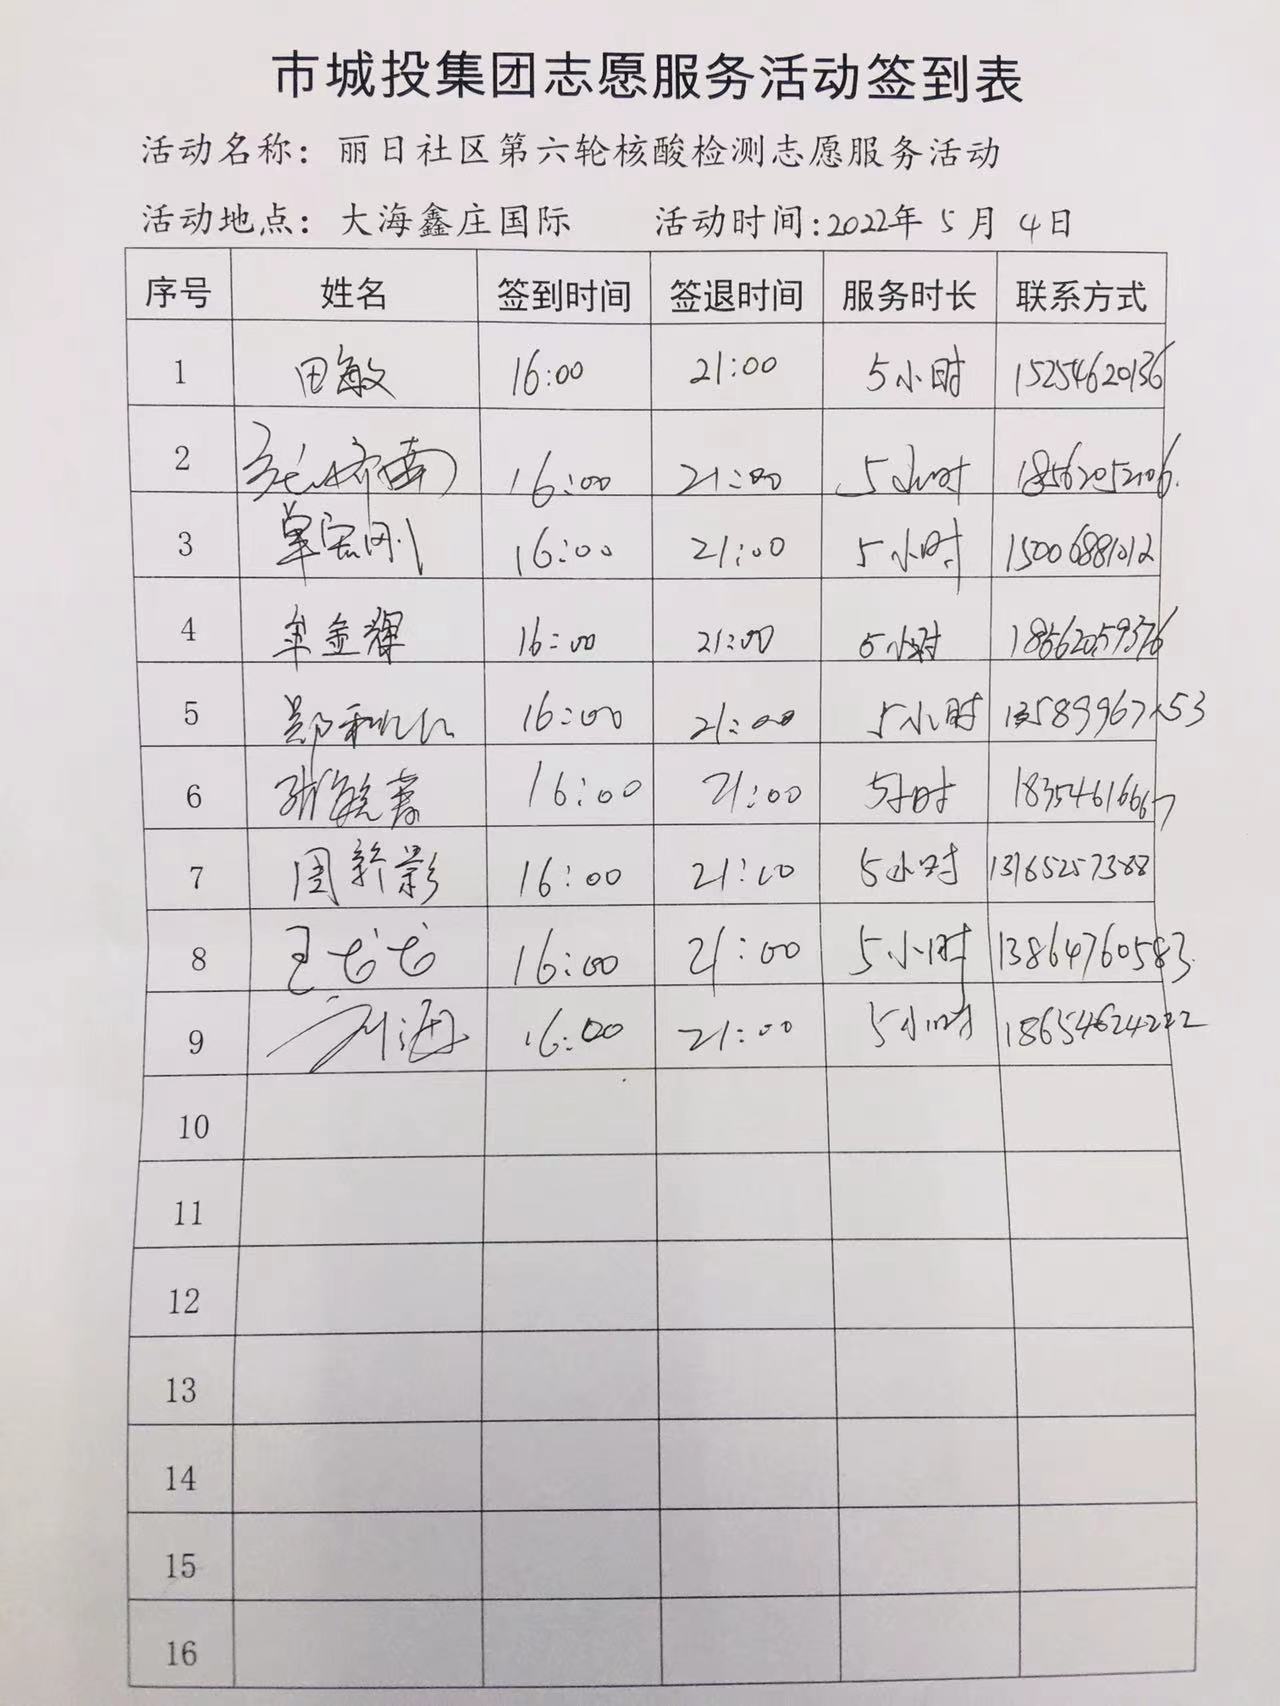 市城投集团志愿服务活动签到表
活动名称：丽日社区第六轮核酸检测志愿服务活动
活动地点：大海鑫庄国际 活动时间:2022年 5 月 4日
序号 姓名 签到时间 签退时间 服务时长 联系方式
1 田敏 16:00 21:00 5小时 15254620136
2 16:00 21:00 5小时 18562052106
3 单宏刚 16:00 21:00 5小时 15006881012
4 牟金辉 16:00 21:00 5小时 18562059376
5 16:00 21:00 5小时
6 张毓蓉 16:00 21:00 5小时 18354616667
7 周新影 16:00 21:00 5小时 13165257388
8 王龙龙 16:00 21:00 5小时 13864760583
9 刘海 16:00 21:00 5小时 18654624222
10
11
12
13
14
15
16